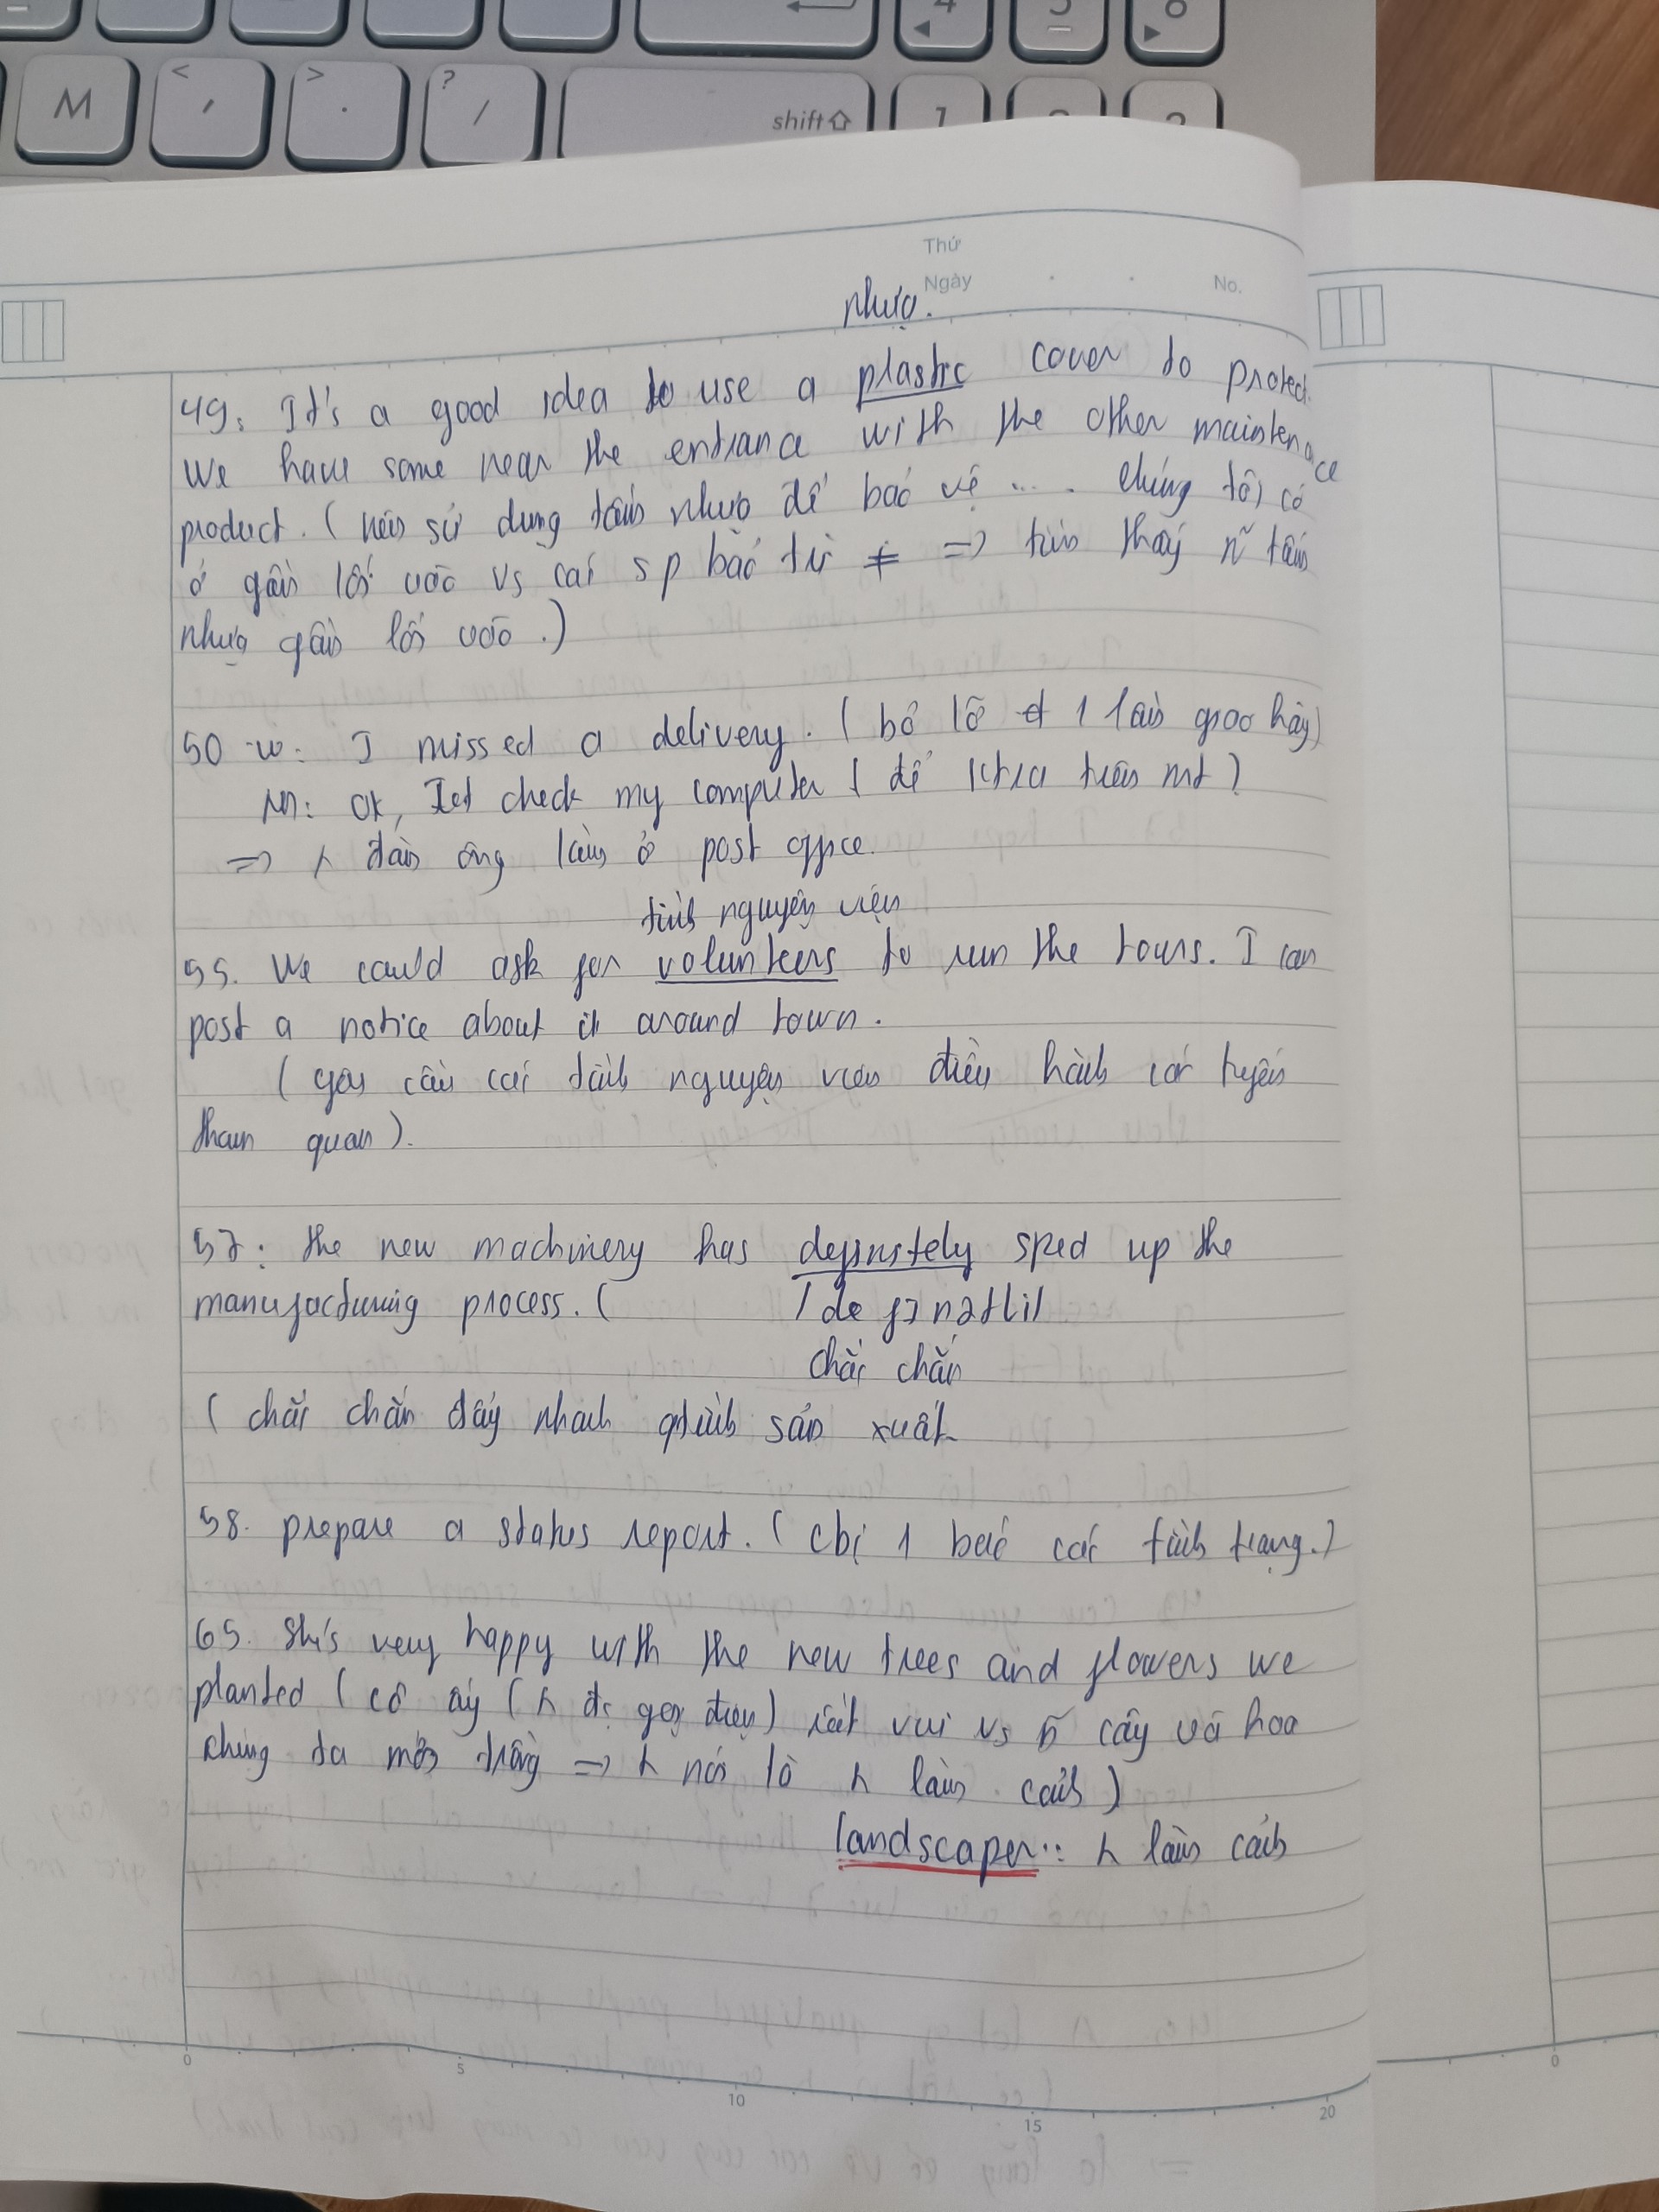 M
<
,
>
.
?
/
shift
1
Thứ
Ngày
No.
nhựa.
49. It's a good idea to use a plastic cover to protect.
We have some near the entrance with the other maintenace
product. (nên sử dụng tấm nhựa để bảo vệ .... chúng tôi có
ở gần lối vào vs các sp bảo trì ≠ => tìm thấy n~ tấm
nhựa gần lối vào.)
50 w: I missed a delivery. (bỏ lỡ 1 lần giao hàg)
M: OK, Let check my computer ( để ktra trên mt )
=> đàn ông làm ở post office.
tình nguyện viên
55. We could ask for volunteers to run the tours. I can
post a notice about it around town.
(yêu cầu các tình nguyện viên điều hành các tuyến
tham quan).
57: the new machinery has definitely sped up the
manufacturing process. (
/ de fɪnətli/
chắc chắn
( chắc chắn đẩy nhanh qtrình sản xuất
58. prepare a status report. ( cbị 1 báo cáo tình trạng.)
65. She's very happy with the new trees and flowers we
planted ( cô ấy ( n đc gọi điện) rất vui vs n~ cây và hoa
chúng ta mới trồng => n nói là n làm cảnh )
landscaper: n làm cảnh
0
5
10
15
20
0